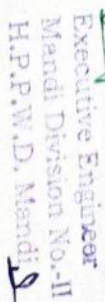 Executive Engineer
Mandi Division No.-II
H.P.P.W.D. Mandi